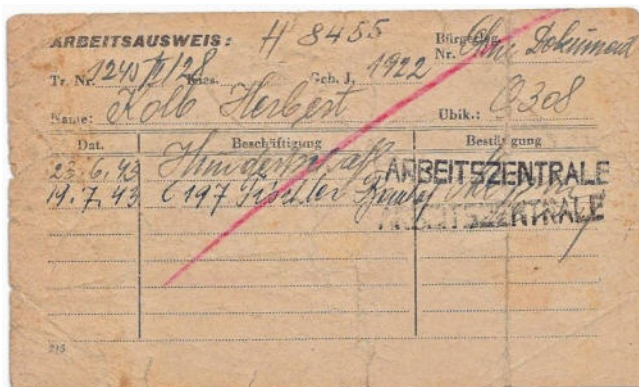 ARBEITSAUSWEIS: H 8455 Bürgerleg. Nr. Ohne Dokument
Tr. Nr. 1245 IV/128 Klas. Geb. J. 1922
Name: Kolb Herbert Ubik.: Q308
Dat. Beschäftigung Bestätigung
23.6.43 Hundertschaft ARBEITSZENTRALE
19.7.43 C 197 Tischler ARBEITSZENTRALE
215